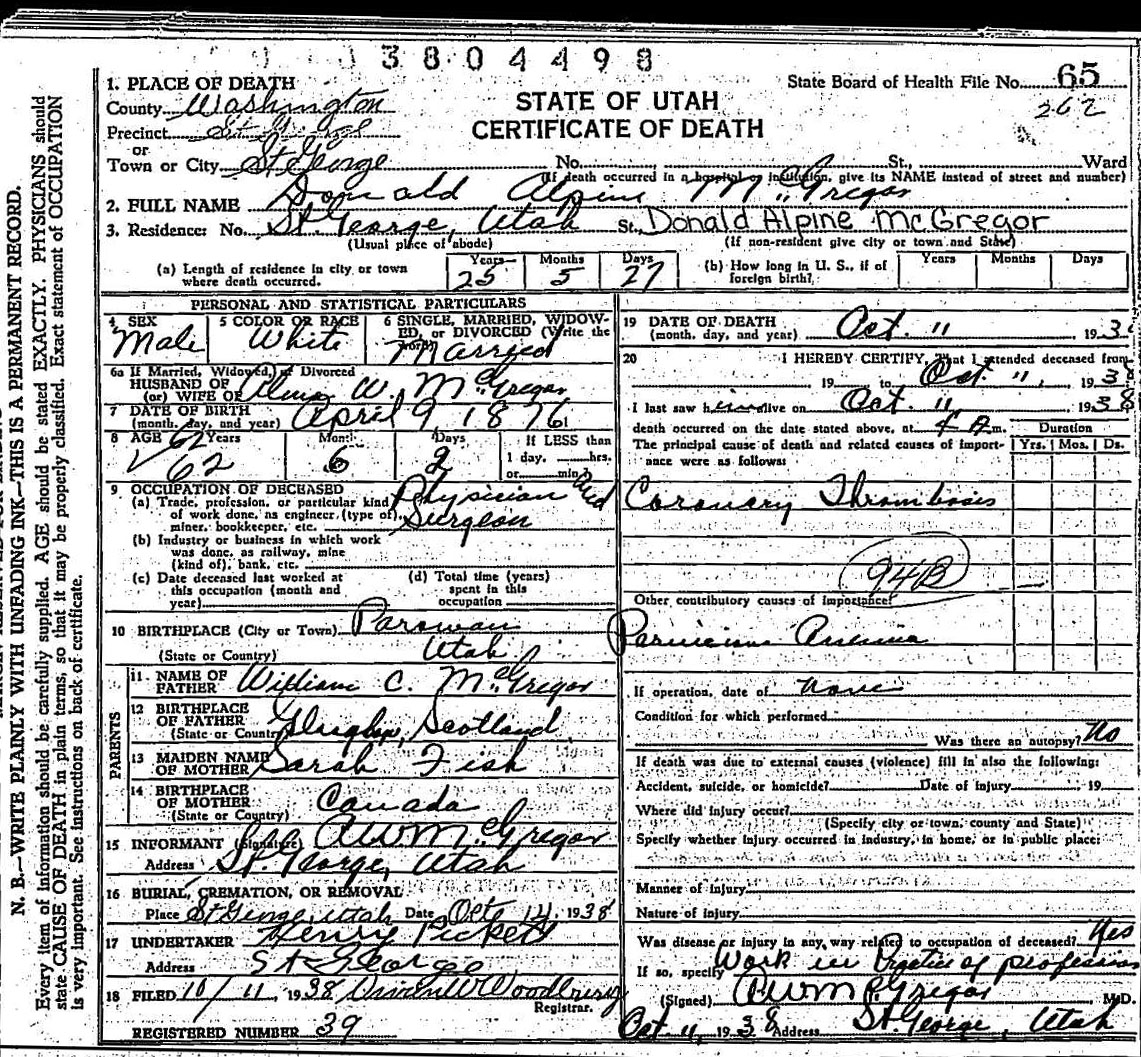 3804498
1. PLACE OF DEATH
State Board of Health File No. 65
County Washington
STATE OF UTAH
262
Precinct St George
CERTIFICATE OF DEATH
or
Town or City St George No. St., Ward
(If death occurred in a hospital or institution, give its NAME instead of street and number)
2. FULL NAME Donald Alpine McGregor
3. Residence: No. St. George, Utah St. Donald Alpine McGregor
(Usual place of abode) (If non-resident give city or town and State)
(a) Length of residence in city or town where death occurred. Years 25 Months 5 Days 27 (b) How long in U. S., if of foreign birth? Years Months Days
PERSONAL AND STATISTICAL PARTICULARS
4 SEX Male 5 COLOR OR RACE White 6 SINGLE, MARRIED, WIDOWED, or DIVORCED (Write the word) Married
6a If Married, Widowed, or Divorced
HUSBAND OF
(or) WIFE OF W. McGregor
7 DATE OF BIRTH
(month, day, and year) April 9 1876
8 AGE 62 Years Months Days If LESS than
62 6 2 1 day, hrs.
or min.
9 OCCUPATION OF DECEASED
(a) Trade, profession, or particular kind of work done, as engineer (type of), miner, bookkeeper, etc. Physician and Surgeon
(b) Industry or business in which work was done, as railway, mine (kind of), bank, etc.
(c) Date deceased last worked at this occupation (month and year)
(d) Total time (years) spent in this occupation
10 BIRTHPLACE (City or Town) Parowan
(State or Country) Utah
PARENTS
11 NAME OF FATHER William C. McGregor
12 BIRTHPLACE OF FATHER
(State or Country) Glasgow, Scotland
13 MAIDEN NAME OF MOTHER Sarah Fish
14 BIRTHPLACE OF MOTHER
(State or Country) Canada
15 INFORMANT (Signature) AWMcGregor
Address St. George, Utah
16 BURIAL, CREMATION, OR REMOVAL
Place St George, Utah Date Oct 14, 1938
17 UNDERTAKER Henry Pickett
Address St George
18 FILED 10/11, 1938 Woodbury
Registrar.
REGISTERED NUMBER 39
19 DATE OF DEATH
(month, day, and year) Oct. 11 193
20 I HEREBY CERTIFY, That I attended deceased from
19 to Oct. 11, 1938
I last saw him alive on Oct. 11 1938
death occurred on the date stated above, at 4 A m. Duration
The principal cause of death and related causes of importance were as follows: Yrs. Mos. Ds.
Coronary Thrombosis
94B
Other contributory causes of importance:
Pernicious Anemia
If operation, date of none
Condition for which performed
Was there an autopsy? No
If death was due to external causes (violence) fill in also the following:
Accident, suicide, or homicide? Date of injury 19
Where did injury occur?
(Specify city or town, county and State)
Specify whether injury occurred in industry, in home, or in public place:
Manner of injury
Nature of injury
Was disease or injury in any way related to occupation of deceased? Yes
If so, specify Work in Practice of profession
(Signed) AWMcGregor M.D.
Oct 11, 1938 Address St. George, Utah
N. B.—WRITE PLAINLY WITH UNFADING INK—THIS IS A PERMANENT RECORD.
Every item of information should be carefully supplied. AGE should be stated EXACTLY. PHYSICIANS should
state CAUSE OF DEATH in plain terms, so that it may be properly classified. Exact statement of OCCUPATION
is very important. See instructions on back of certificate.